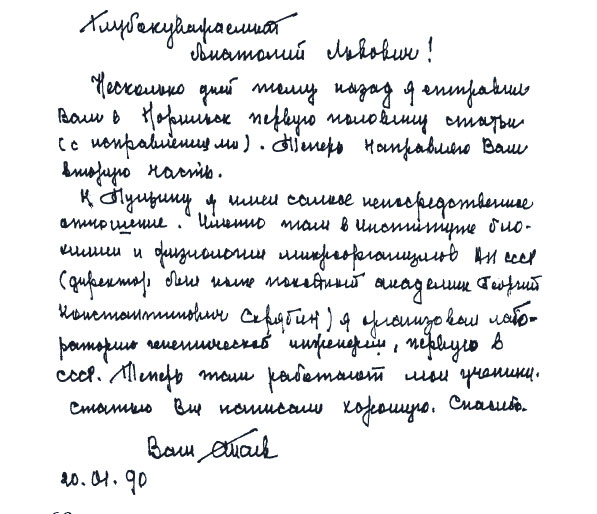 Глубокоуважаемый
Анатолий Львович!
Несколько дней тому назад я отправил
Вам в Норильск первую половину статьи
(с исправлениями). Теперь направляю Вам
вторую часть.
К Пущину я имею самое непосредственное
отношение. Именно там в институте био-
химии и физиологии микроорганизмов АН СССР
(директор, был ныне покойный академик Георгий
Константинович Скрябин) я организовал лабо-
раторию генетической инженерии, первую в
СССР. Теперь там работают мои ученики.
Статью Вы написали хорошую. Спасибо.
Ваш
20.01.90